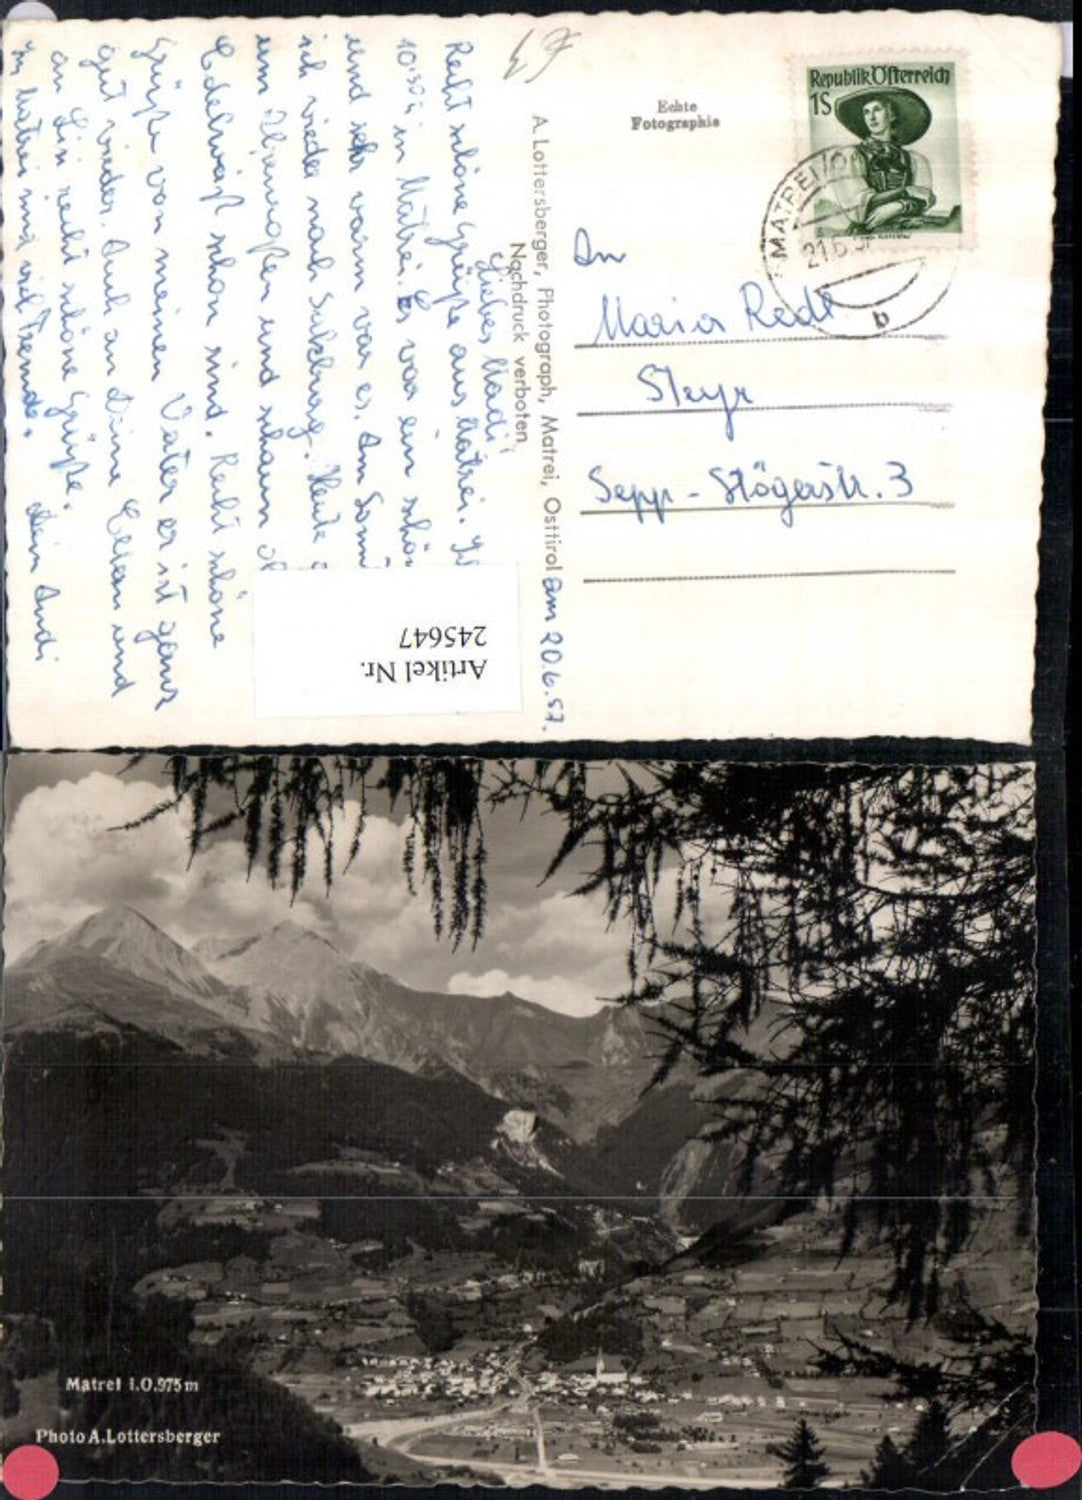 am 20.6.57.
Liebes Madi!
Recht schöne Grüße aus Matrei.
10:30h in Matrei. Es war ein
und sehr warm war es. Am
ich wieder nach Salzburg. Heute
em und schauen
Edelweiß schon sind. Recht schöne
Grüße von meinem Vater er ist ganz
gut wieder. Auch an Deine Eltern und
an Sin recht schöne Grüße.
in Matrei sind viel Fremde. Dein Andi
A. Lottersberger, Photograph, Matrei, Osttirol
Nachdruck verboten
Echte
Fotographie
Republik Österreich
1S
MATREI
21.6.5
b
An
Maria Redl
Steyr
Sepp-Stögerstr. 3
Artikel Nr.
245647
Matrei i.O.975m
Photo A.Lottersberger